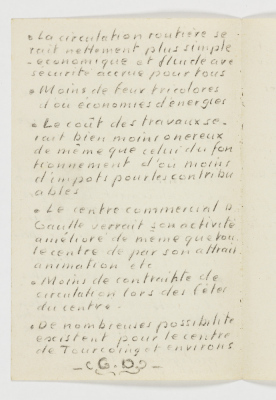 • La circulation routière se
rait nettement plus simple
- economique et fluide ave
securité accrue pour tous
• Moins de feux tricolores
d'ou économies d'énergies
• Le coût des travaux se-
rait bien moins onereux
de même que celui du fon
tionnement d'ou moins
d'impots pour les contribu
ables
• Le centre commercial D.
Gaulle verrait son activité
améliorè de même que tou
le centre de par son attrai
animation etc
• Moins de contrainte de
circulation lors des fêtes
du centre.
• De nombreuses possibilité
existent pour le centre
de Tourcoing et environs
G. D.